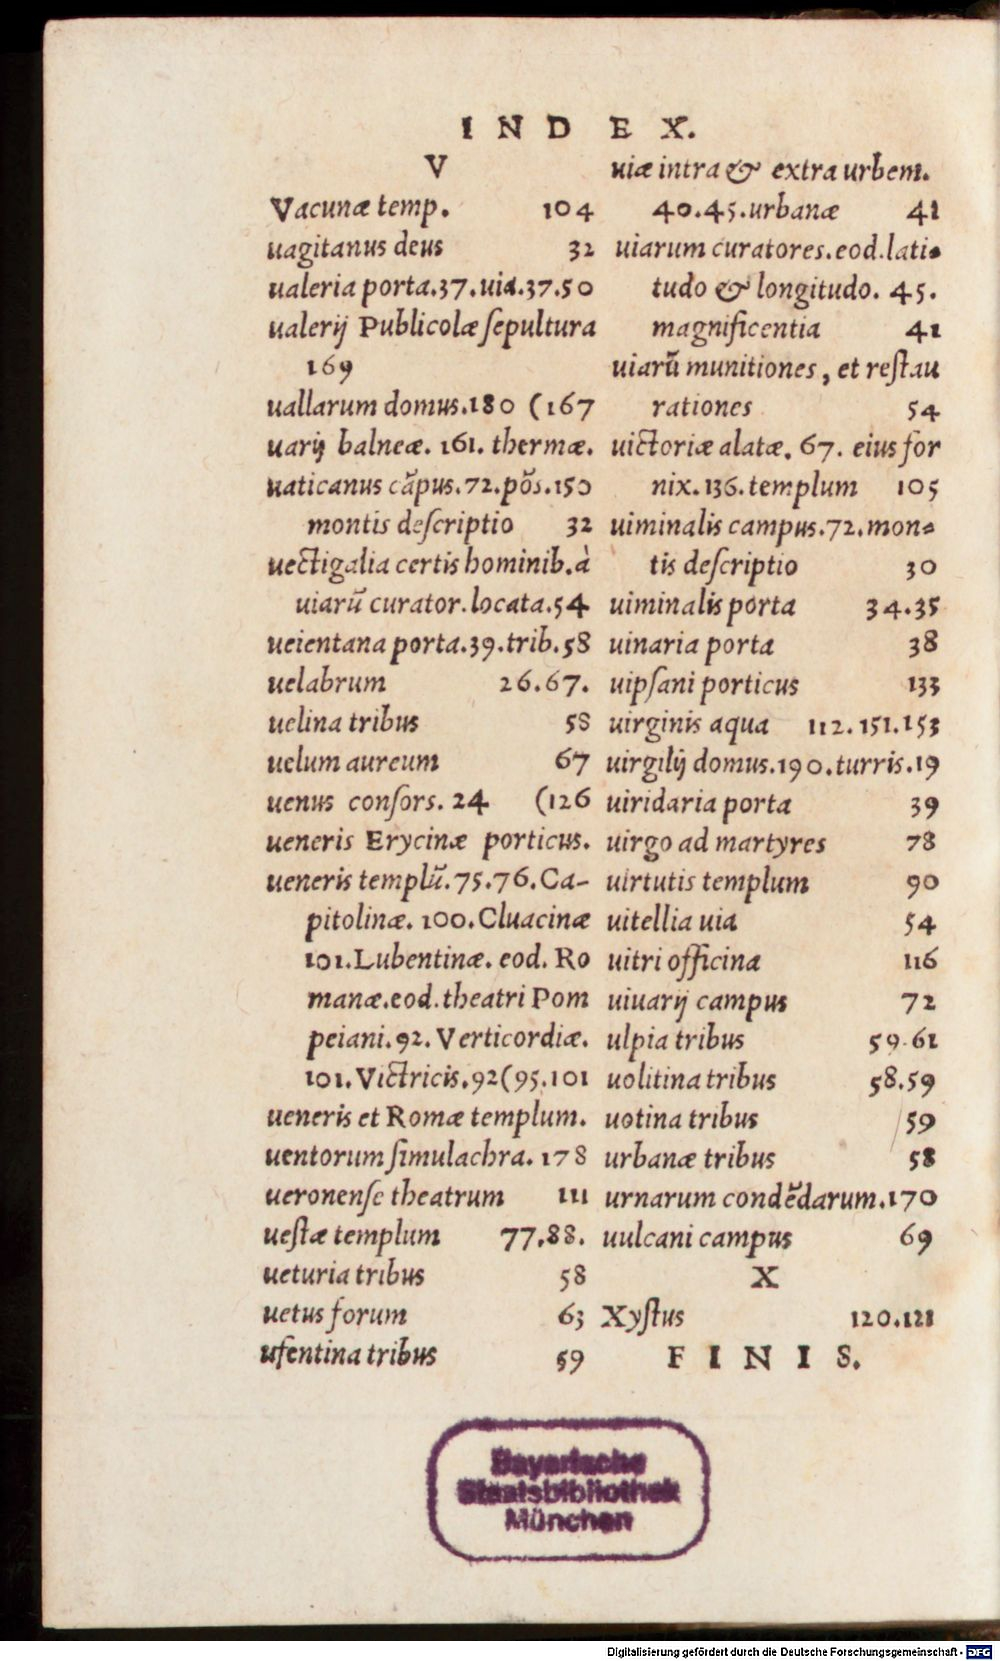 INDEX.
V
Vacunæ temp. 104
uagitanus deus 32
ualeria porta.37.uia.37.50
ualerij Publicolæ sepultura
169
uallarum domus.180 (167
uarij balneæ. 161. thermæ.
uaticanus cãpus.72.põs.150
montis descriptio 32
uectigalia certis hominib.à
uiarũ curator.locata.54
ueientana porta.39.trib.58
uelabrum 26.67.
uelina tribus 58
uelum aureum 67
uenus consors. 24 (126
ueneris Erycinæ porticus.
ueneris templũ.75.76.Ca-
pitolinæ. 100.Cluacinæ
101.Lubentinæ. eod. Ro
manæ.eod.theatri Pom
peiani.92. Verticordiæ.
101.Victricis.92(95.101
ueneris et Romæ templum.
uentorum simulachra. 178
ueronense theatrum 111
uestæ templum 77.88.
ueturia tribus 58
uetus forum 63
ufentina tribus 59
uiæ intra & extra urbem.
40.45.urbanæ 41
uiarum curatores.eod.lati-
tudo & longitudo. 45.
magnificentia 41
uiarũ munitiones, et restau
rationes 54
uictoriæ alatæ. 67. eius for
nix.136.templum 105
uiminalis campus.72.mon-
tis descriptio 30
uiminalis porta 34.35
uinaria porta 38
uipsani porticus 133
uirginis aqua 112.151.153
uirgilij domus.190.turris.19
uiridaria porta 39
uirgo ad martyres 78
uirtutis templum 90
uitellia uia 54
uitri officina 116
uiuarij campus 72
ulpia tribus 59.61
uolitina tribus 58.59
uotina tribus 59
urbanæ tribus 58
urnarum condẽdarum.170
uulcani campus 69
X
Xystus 120.121
FINIS.
Bayerische
Staatsbibliothek
München
Digitalisierung gefördert durch die Deutsche Forschungsgemeinschaft - DFG